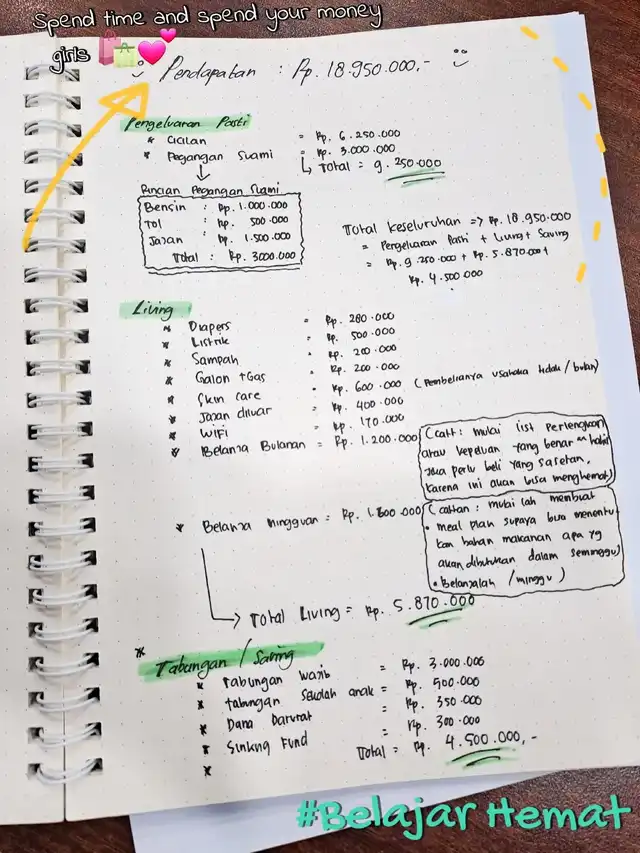 Spend time and spend your money
girls
Pendapatan : Rp. 18.950.000,-
Pengeluaran Pasti
* Cicilan = Rp. 6.250.000
* Pegangan Suami = Rp. 3.000.000
Total = 9.250.000
Rincian Pegangan Suami
Bensin : Rp. 1.000.000
Tol : Rp. 500.000
Jajan : Rp. 1.500.000
Total : Rp. 3000.000
Total keseluruhan => Rp. 18.950.000
= Pengeluaran Pasti + Living + Saving
= Rp. 9.250.000 + Rp. 5.870.000 +
Rp. 4.500.000
Living
* Diapers = Rp. 280.000
* Listrik = Rp. 500.000
* Sampah = Rp. 200.000
* Galon + Gas = Rp. 200.000
* Skin care = Rp. 600.000 (Pembeliannya usahaka tidak / bulan)
* Jajan diluar = Rp. 400.000
* WIFI = Rp. 170.000
* Belanja Bulanan = Rp. 1.200.000
(catt: mulai list perlengkapan
atau keperluan yang benar" habis
jika perlu beli yang saretan,
karena ini akan bisa menghemat)
* Belanja mingguan = Rp. 1.800.000
(cattan : mulai lah membuat
• meal plan supaya bisa menentu
kan bahan makanan apa yg
akan dibutukan dalam seminggu)
• Belanjalah /minggu)
Total Living = Rp. 5.870.000
* Tabungan / Saving
* Tabungan Wajib = Rp. 3.000.000
* tabungan Sekolah anak = Rp. 500.000
* Dana Darurat = Rp. 350.000
* Sinking Fund = Rp. 300.000
*
Total = Rp. 4.500.000,-
#Belajar Hemat